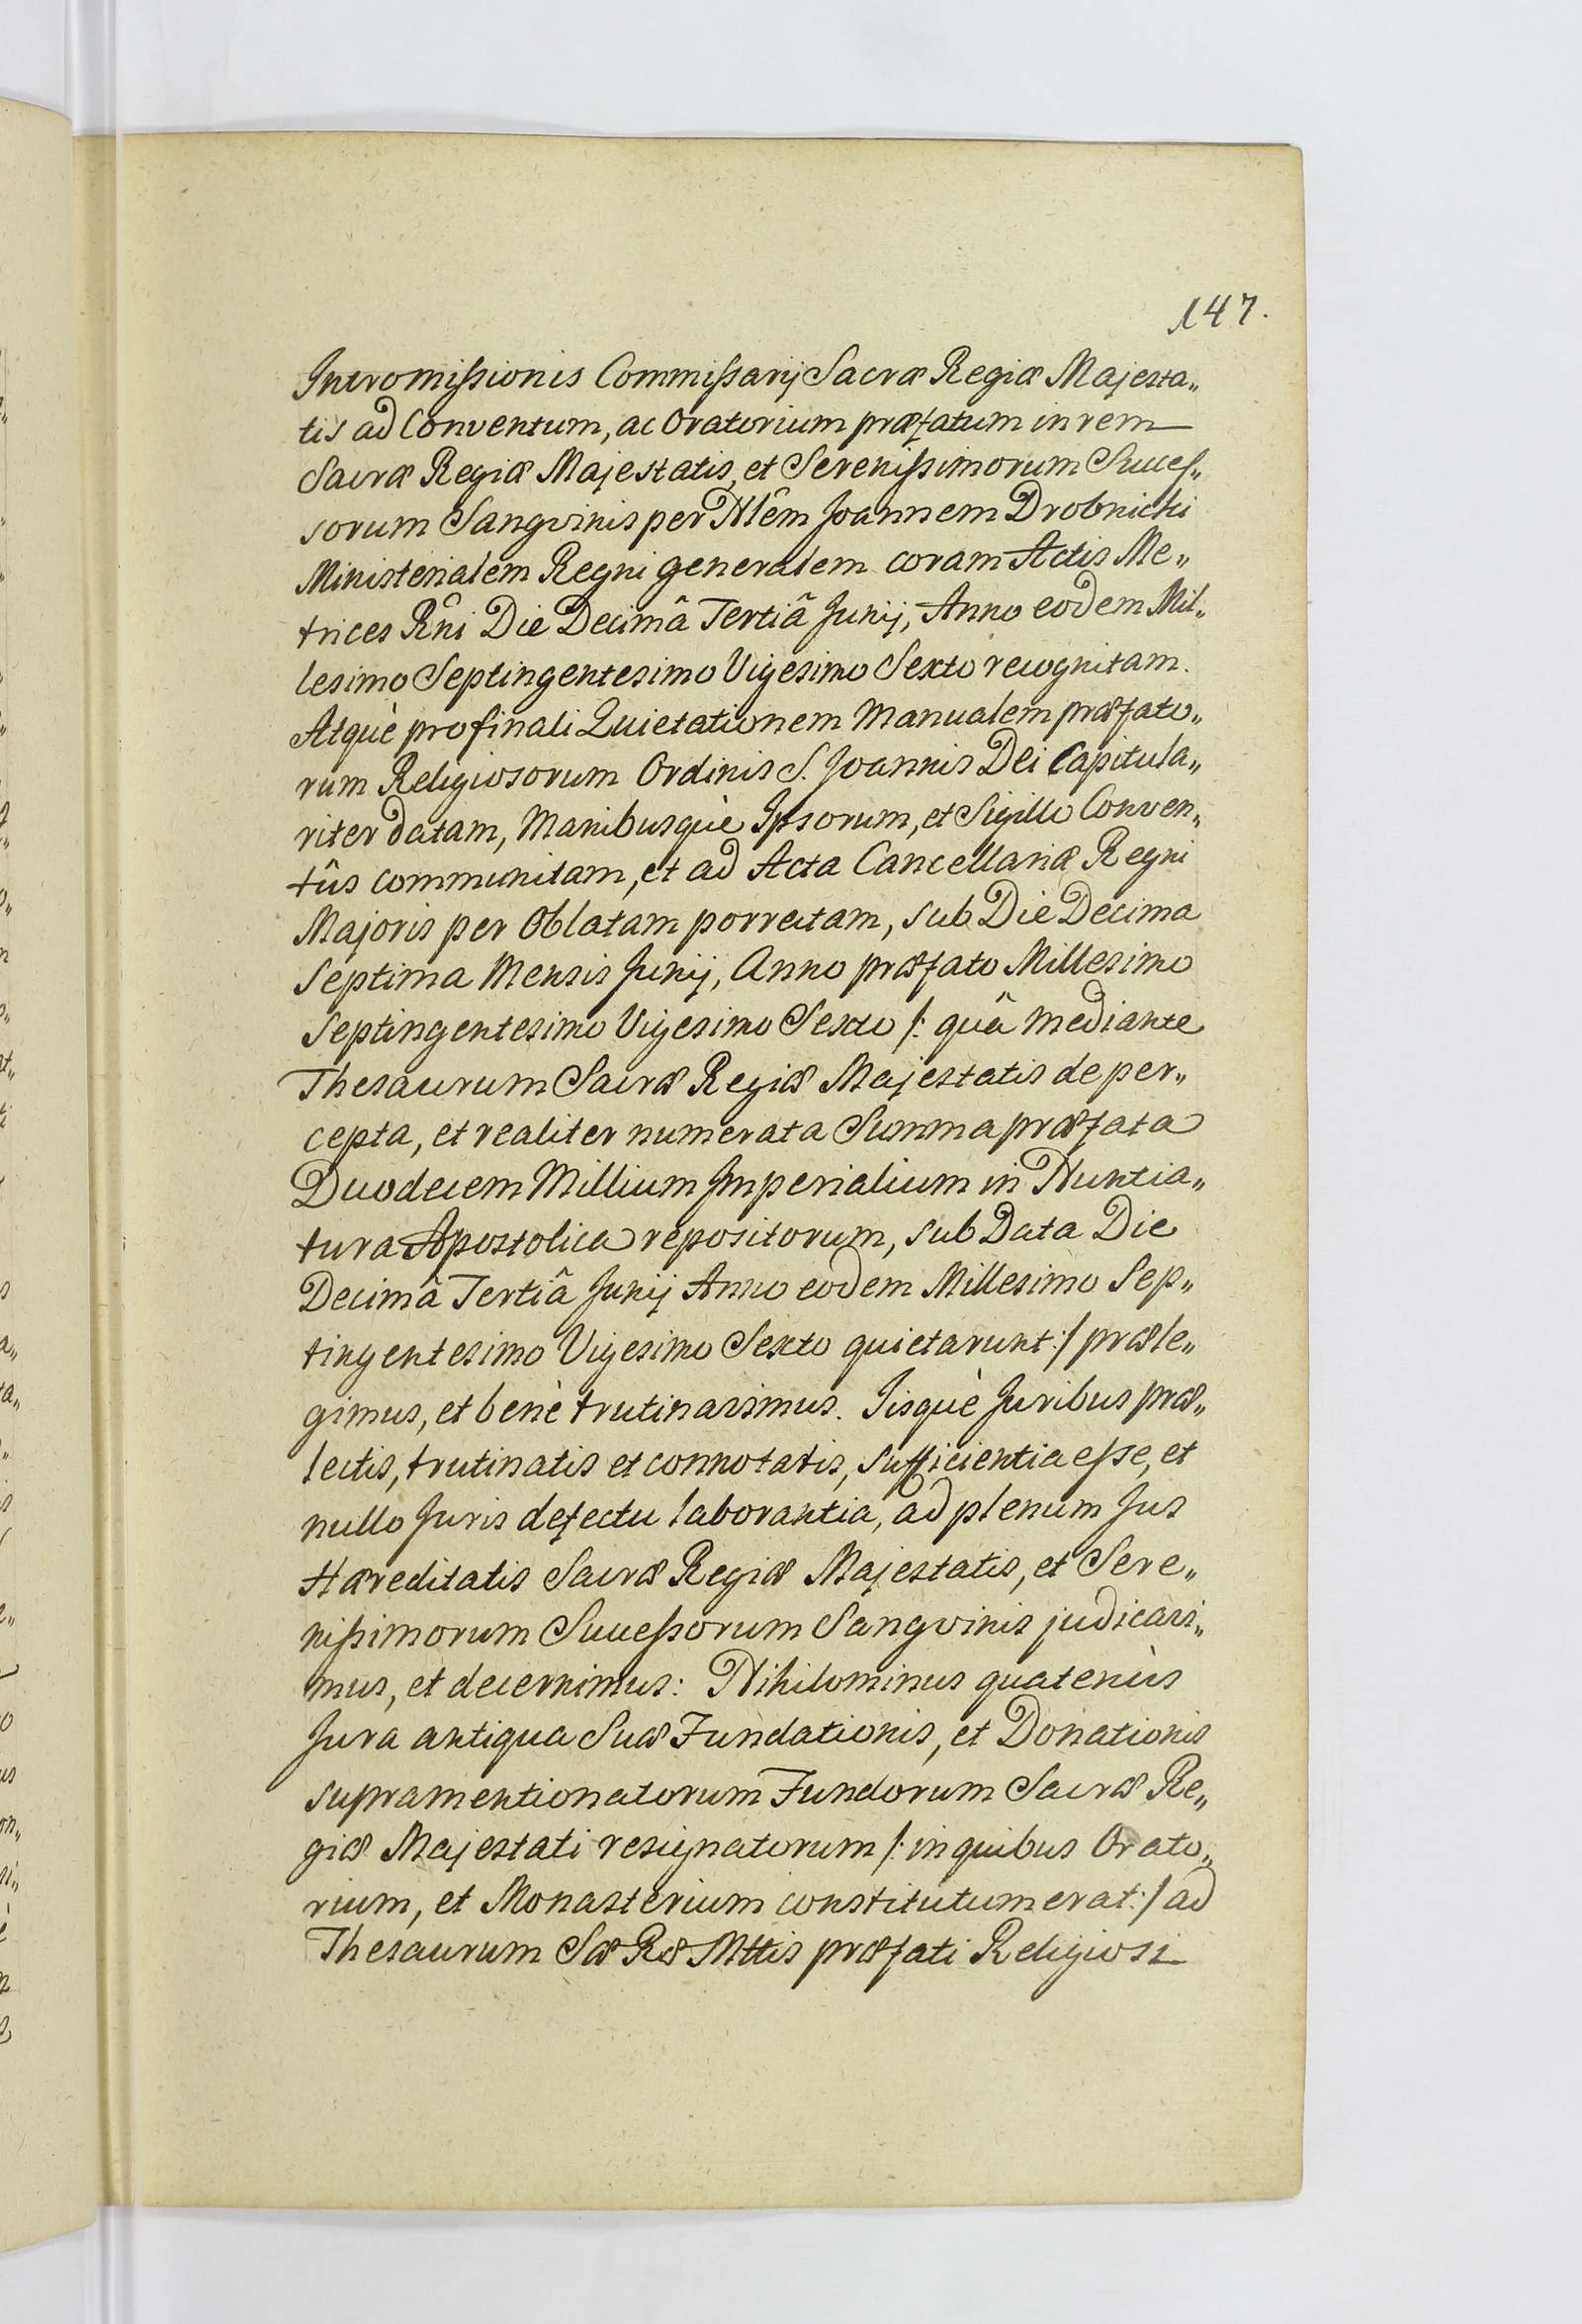 147.
Intromißionis Commißarij Sacræ Regiæ Majesta„
tis ad Conventum, ac Oratorium præfatum in rem
Sacræ Regiæ Majestatis, et Serenißimorum Succeß„
sorum Sangvinis per Nlêm Joannem Drobnicki
Ministerialem Regni generalem coram Actis Me„
trices Rni Die Decimâ Tertiâ Junij, Anno eodem Mil„
lesimo Septingentesimo Vigesimo Sexto recognitam.
Atquè pro finali Quietationem Manualem præfato„
rum Religiosorum Ordinis S. Joannis Dei Capitula„
riter datam, Manibusquè Ipsorum, et Sigillo Conven„
tûs communitam, et ad Acta Cancellariæ Regni
Majoris per Oblatam porrectam, sub Die Decima
Septima Mensis Junij, Anno præfato Millesimo
Septingentesimo Vigesimo Sexto /: quâ mediante
Thesaurum Sacræ Regiæ Majestatis de per„
cepta, et realiter numerata Summa præfata
Duodecem Millium Imperialium in Nuntia„
tura Apostolica repositorum, sub Data Die
Decimâ Tertiâ Junij Anno eodem Millesimo Sep„
tingentesimo Vigesimo Sexto quietarunt :/ præle„
gimus, et benè trutinavimus. Iisquè Juribus præ„
lectis, trutinatis et connotatis, sufficientia eße, et
nullo Juris defectu laborantia, ad plenum Jus
Hæreditatis Sacræ Regiæ Majestatis, et Sere„
nißimorum Succeßorum Sangvinis judicavi„
mus, et decernimus: Nihilominus quatenùs
Jura antiqua Suæ Fundationis, et Donationis
supramentionatorum Fundorum Sacræ Re„
giæ Majestati resignatorum /: in quibus Orato„
rium, et Monasterium constitutum erat :/ ad
Thesaurum Sæ Ræ Mttis præfati Religiosi